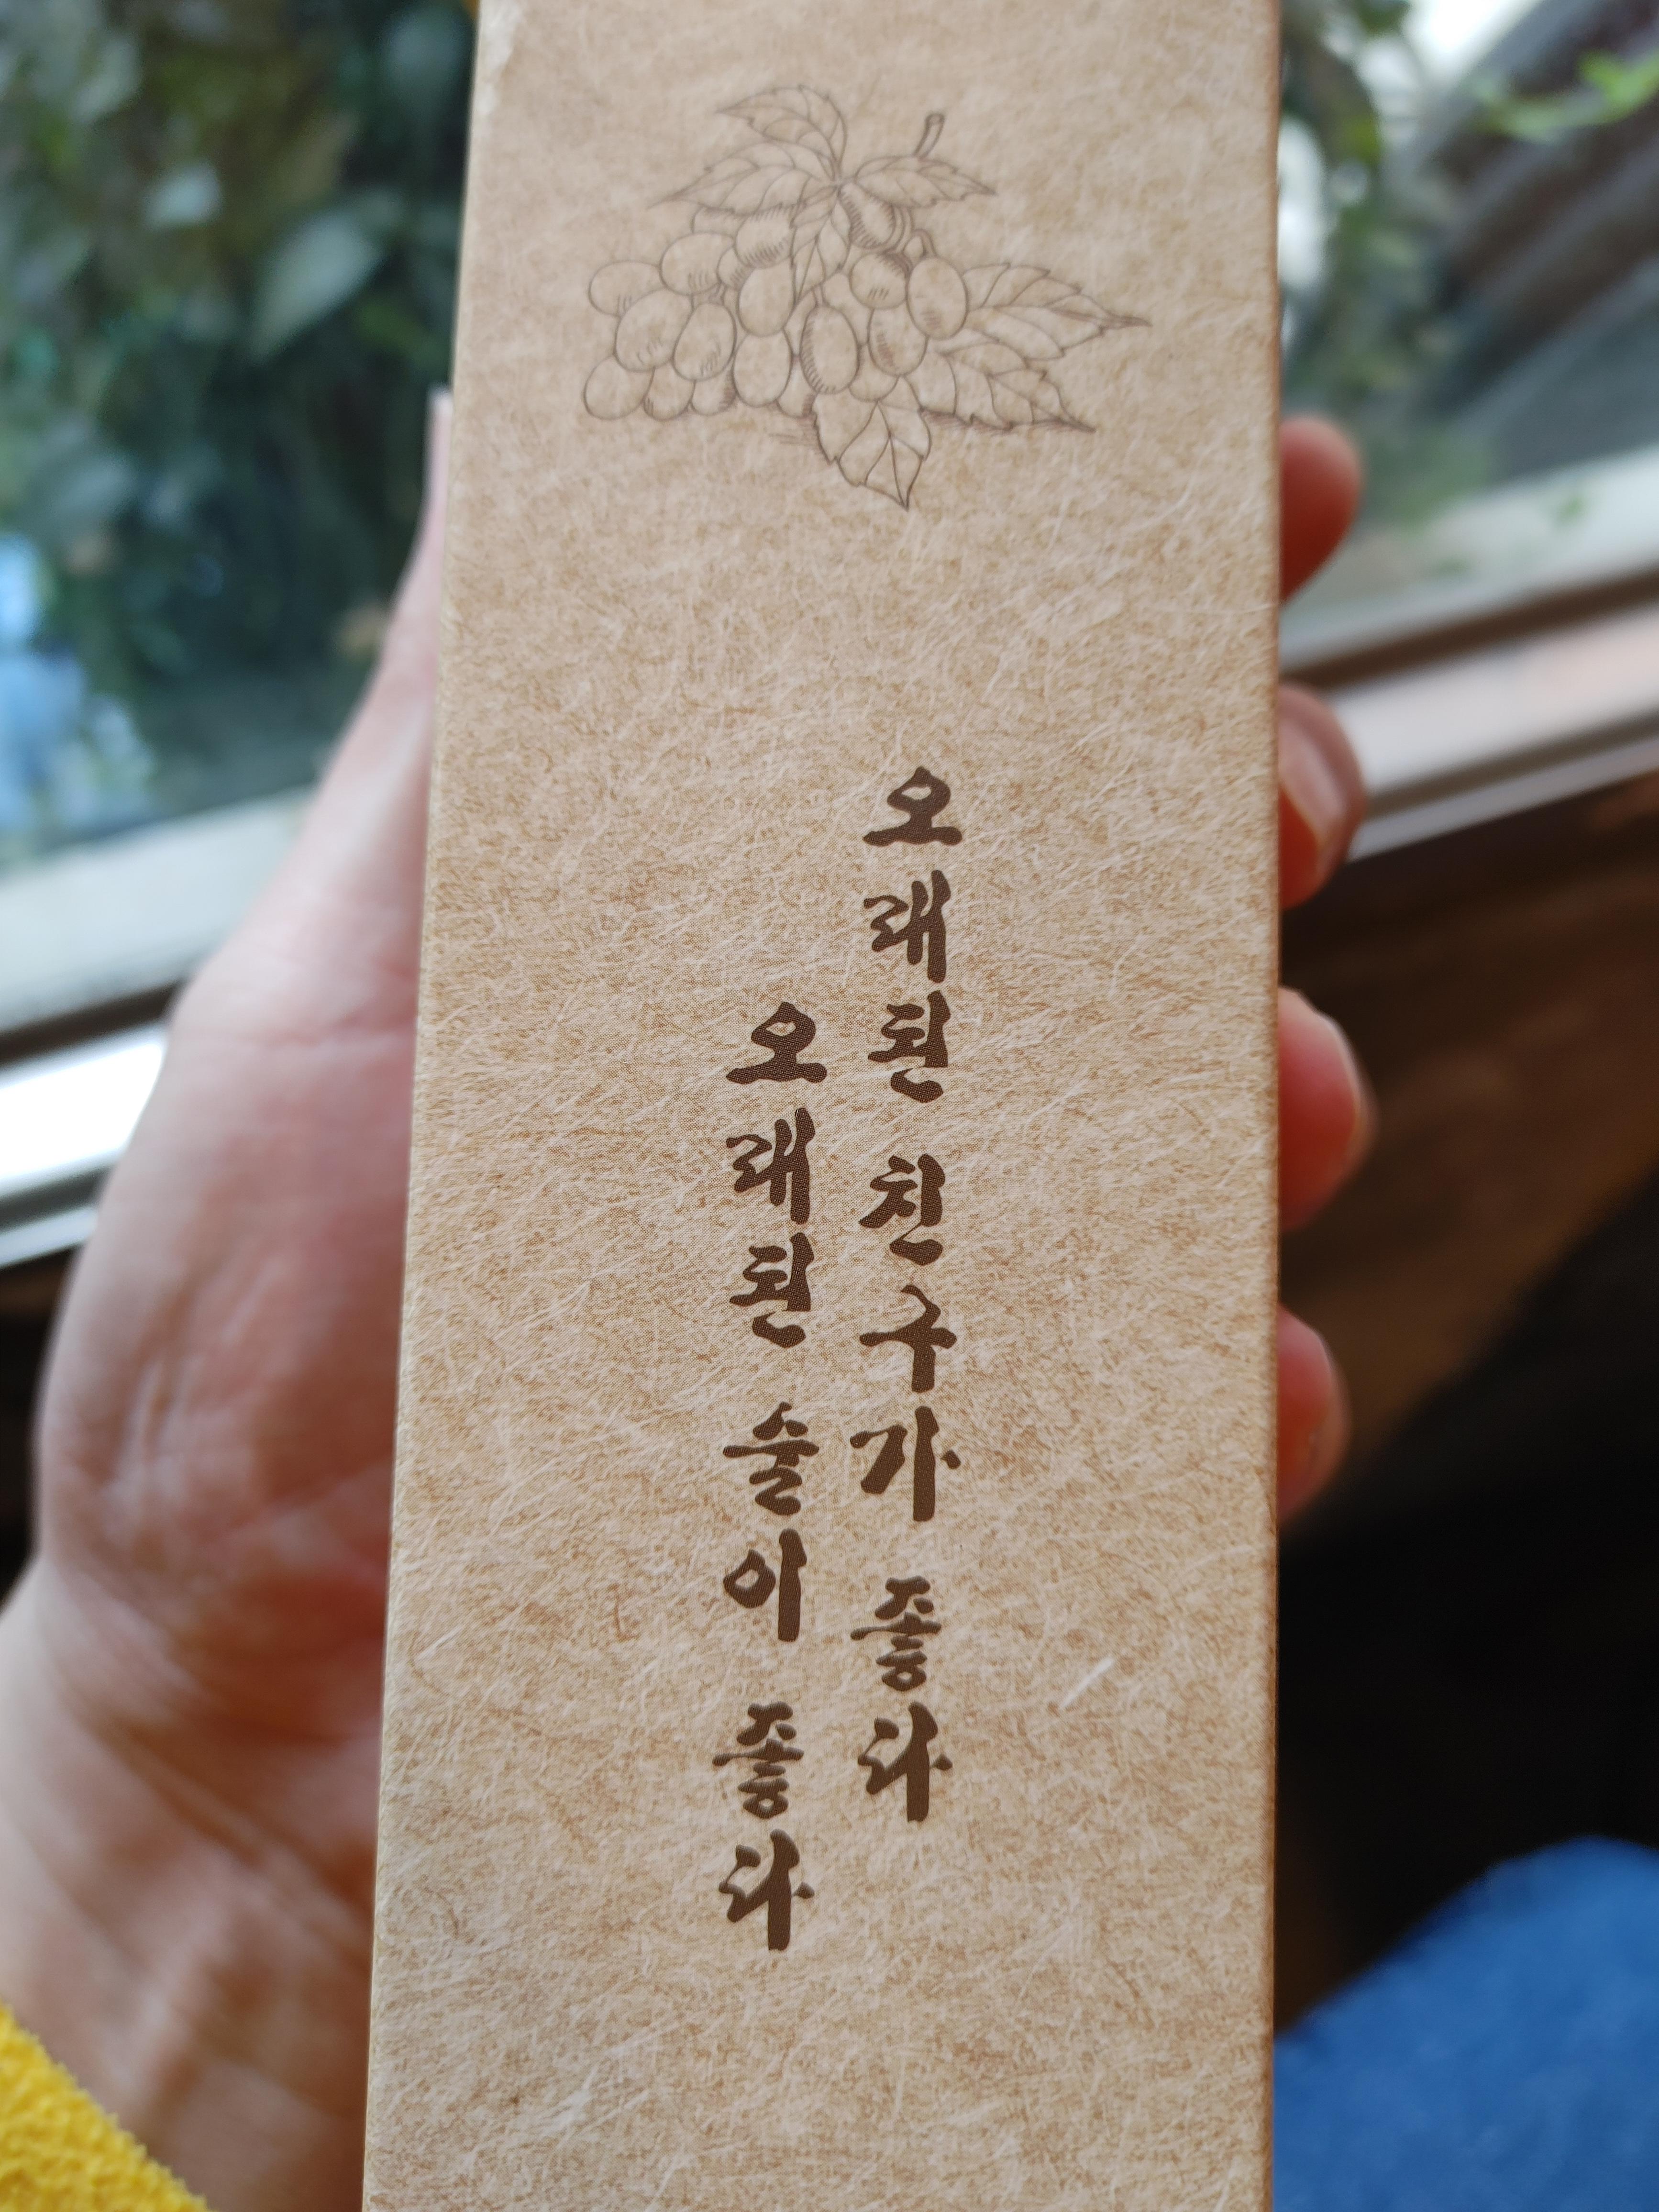 오래된 친구가 좋다
오래된 술이 좋다